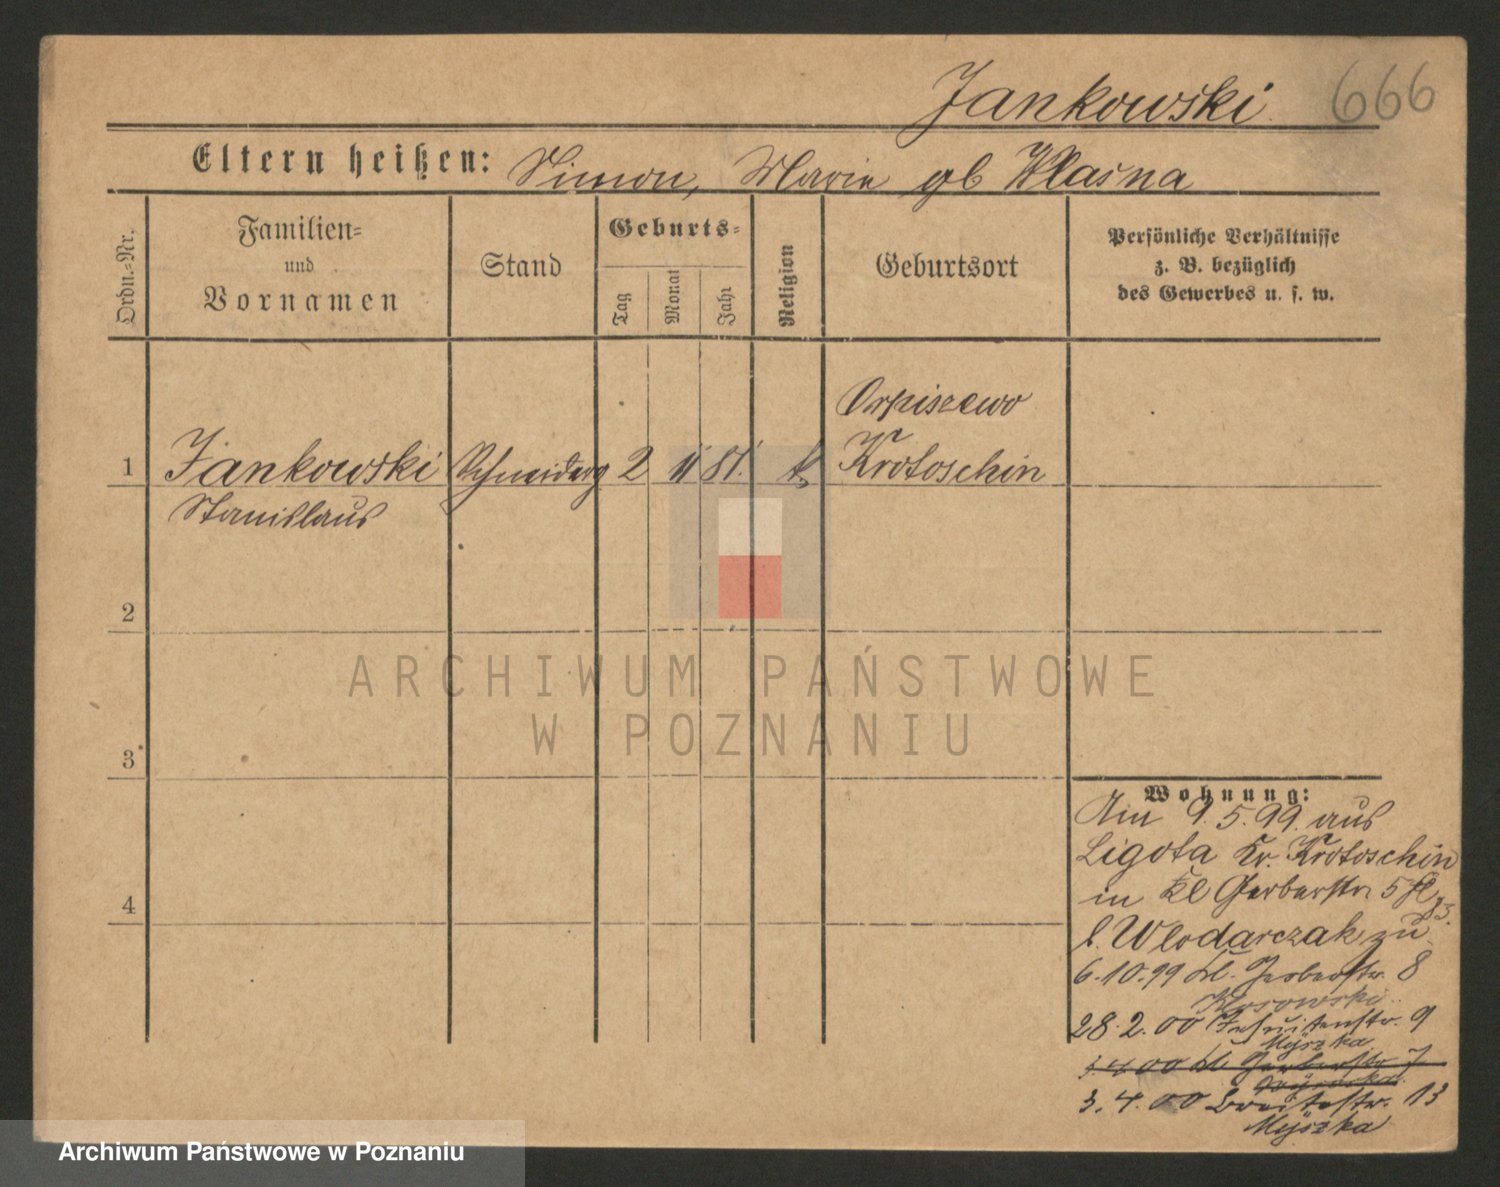 Jankowski 666
Eltern heißen: Simon, Marie gb Wlasna
Ordn.=Nr.
Familien=
und
Vornamen
Stand
Geburts=
Tag
Monat
Jahr
Religion
Geburtsort
Persönliche Verhältnisse
z. B. bezüglich
des Gewerbes u. s. w.
Orpiszewo
1 Jankowski Schneiderg 2 11 81. k. Krotoschin
Stanislaus
2
3
4
Wohnung:
Am 9.5.99. aus
Ligota Kr. Krotoschin
in Kl Gerberstr 5
b. Wlodarczak zu
6.10.99 Kl. Gerberstr. 8
Kosowski
28.2.00 Jesuitenstr. 9
Myszka
3.4.00 Kl. Gerberstr 7
3.4.00 Breitestr. 13
Myszka
ARCHIWUM PAŃSTWOWE
W POZNANIU
Archiwum Państwowe w Poznaniu